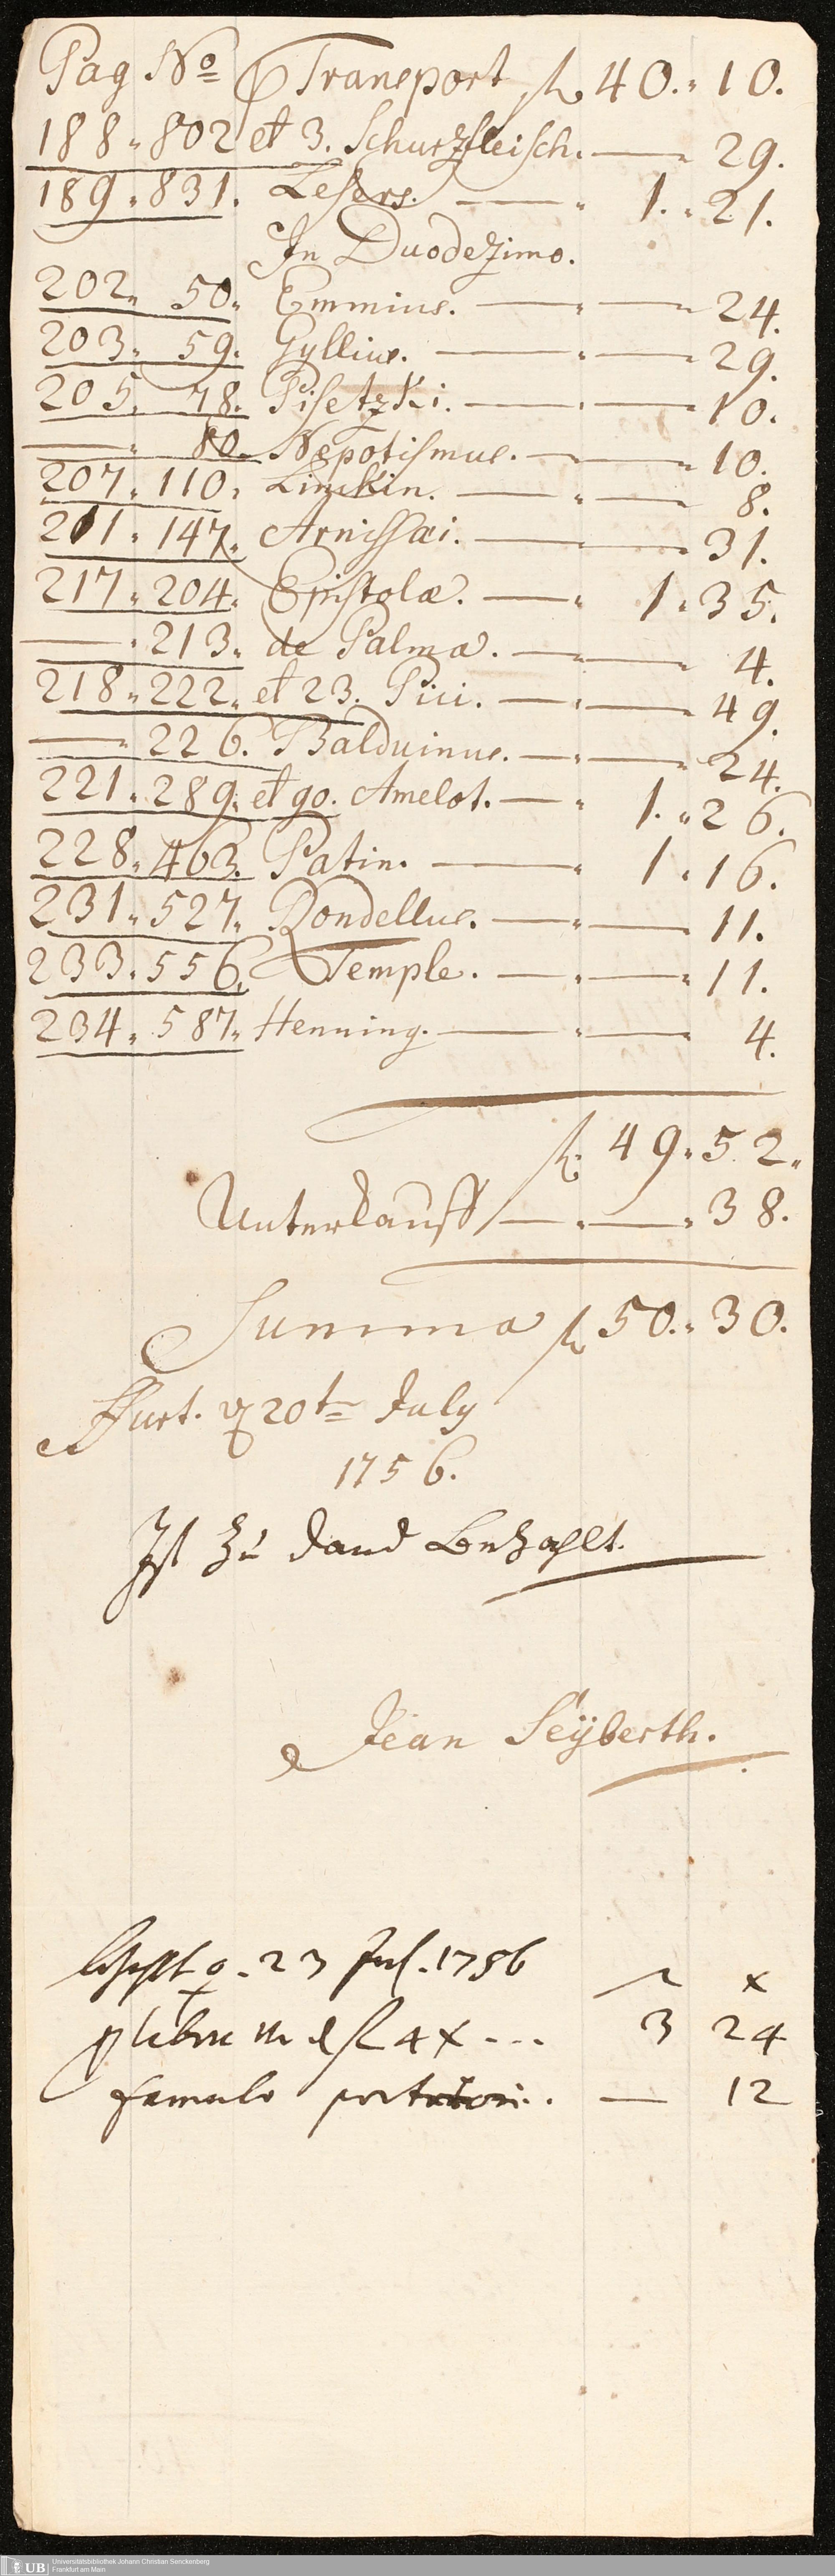 Pag No Transport fl 40. 10.
188. 802 et 3. Schurzfleisch. — 29.
189. 831. Lesers. — 1. 21.
In Duodezimo.
202. 50. Emmius. — 24.
203. 59. Gyllius. — 29.
205. 78. Pisetzki. — 10.
— 80. Nepotismus. — 10.
207. 110. Limckin. — 8.
211. 147. Arnissæi. — 31.
217. 204. Epistolæ. — 1. 35.
— 213. de Palma. — 4.
218. 222. et 23. Pici. — 49.
— 226. Balduinus. — 24.
221. 289. et 90. Amelot. — 1. 26.
228. 463. Patin. — 1. 16.
231. 527. Dondellus. — 11.
233. 556. Temple. — 11.
234. 587. Henning. — 4.
fl. 49. 52.
Unterkauff — 38.
Summa fl 50. 30.
Ffurt. 20t July
1756.
Ist zu danck bezahlt.
Jean Seÿberth.
23 Jul. 1756
fl x
4 x --- 3 24
famulo — 12
UB Universitätsbibliothek Johann Christian Senckenberg
Frankfurt am Main